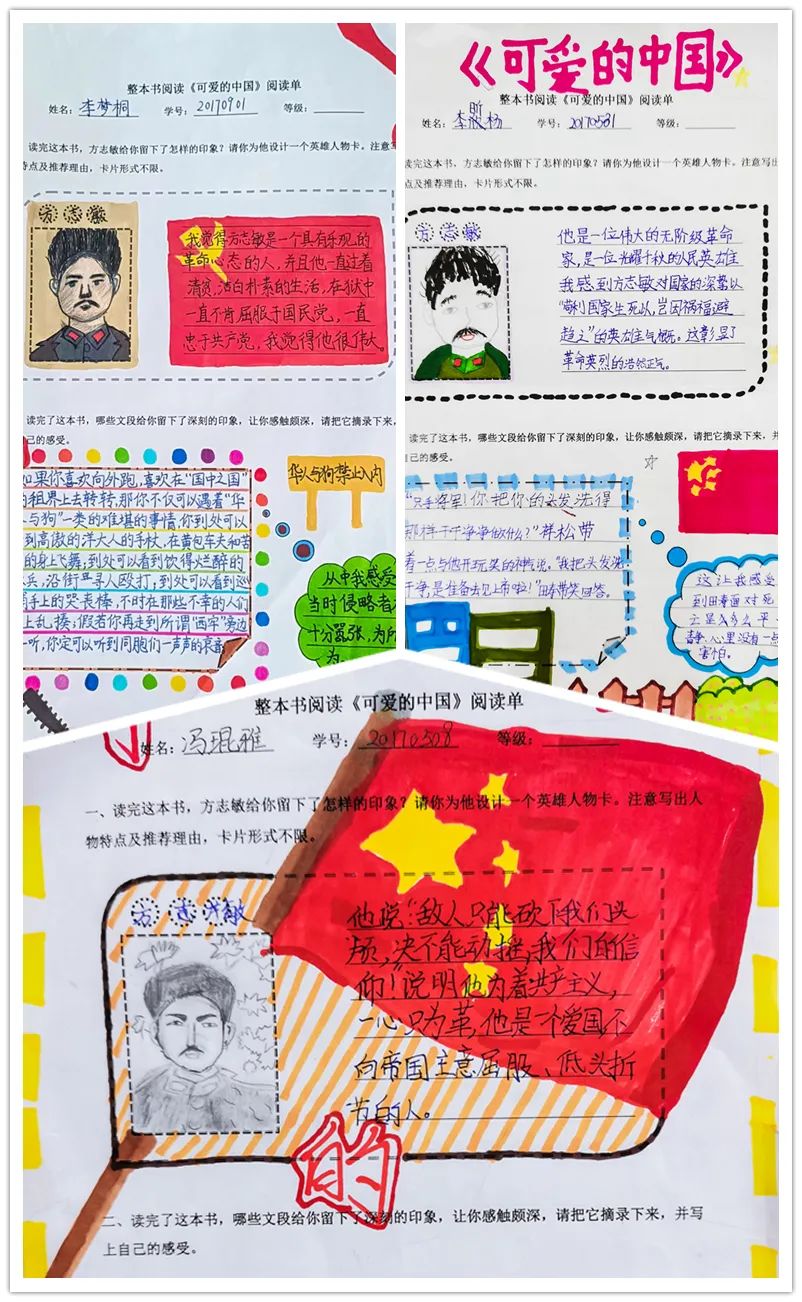 整本书阅读《可爱的中国》阅读单
姓名：李梦桐 学号：20170901 等级：
读完这本书，方志敏给你留下了怎样的印象？请你为他设计一个英雄人物卡。注意写
特点及推荐理由，卡片形式不限。
方志敏
我觉得方志敏是一个具有乐观的
革命心态的人，并且他一直过着
清贫，洁白朴素的生活，在狱中
一直不肯屈服于国民党，一直
忠于共产党，我觉得他很伟大。
读完了这本书，哪些文段给你留下了深刻的印象，让你感触颇深，请把它摘录下来，
己的感受。
如果你喜欢向外跑，喜欢在“国中之国”
的租界上去转转，那你不仅可以遇着“华
人与狗”一类的难堪的事情，你到处可以
到高傲的洋大人的手杖，在黄包车夫和苦
的身上飞舞，到处可以看到饮得烂醉的
水兵，沿街寻人殴打，到处可以看到巡
手上的哭丧棒，不时在那些不幸的人们
上乱揍，假若你再走到所谓“西牢”旁边
一听，你定可以听到同胞们一声声的哀音
华人与狗禁止入内
从中我感受
当时侵略者
十分嚣张，为所
为
《可爱的中国》
整本书阅读《可爱的中国》阅读单
姓名：李 杨 学号：20170531 等级：
读完这本书，方志敏给你留下了怎样的印象？请你为他设计一个英雄人物卡。注意写出
点及推荐理由，卡片形式不限。
方志敏
他是一位伟大的无阶级革命
家，是一位光耀千秋的人民英雄
我感到方志敏对国家的深
“ 利国家生死以，岂因祸福避
趋之”的英雄主气概。这彰显了
革命英烈的浩然正气。
读完了这本书，哪些文段给你留下了深刻的印象，让你感触颇深，请把它摘录下来，并
己的感受。
你把你的头发洗得
那样干干净净做什么？”祥松带
着一点与他开玩笑的神气说。“我把头发洗
干净，是准备去见上帝啦！”田寿带笑回答。
这让我感受
到田寿面对死
亡是么多么平
静，心里没有一点
害怕。
整本书阅读《可爱的中国》阅读单
姓名：冯琨雅 学号：20170508 等级：
一、读完这本书，方志敏给你留下了怎样的印象？请你为他设计一个英雄人物卡。注意写出人
物特点及推荐理由，卡片形式不限。
方志敏
他说：“敌人只能砍下我们头
颅，决不能动摇，我们的信
仰！”说明他为着共产主义，
一心只为革，他是一个爱国不
向帝国主意屈服、低头折
节的人。
的
二、读完了这本书，哪些文段给你留下了深刻的印象，让你感触颇深，请把它摘录下来，并写
上自己的感受。